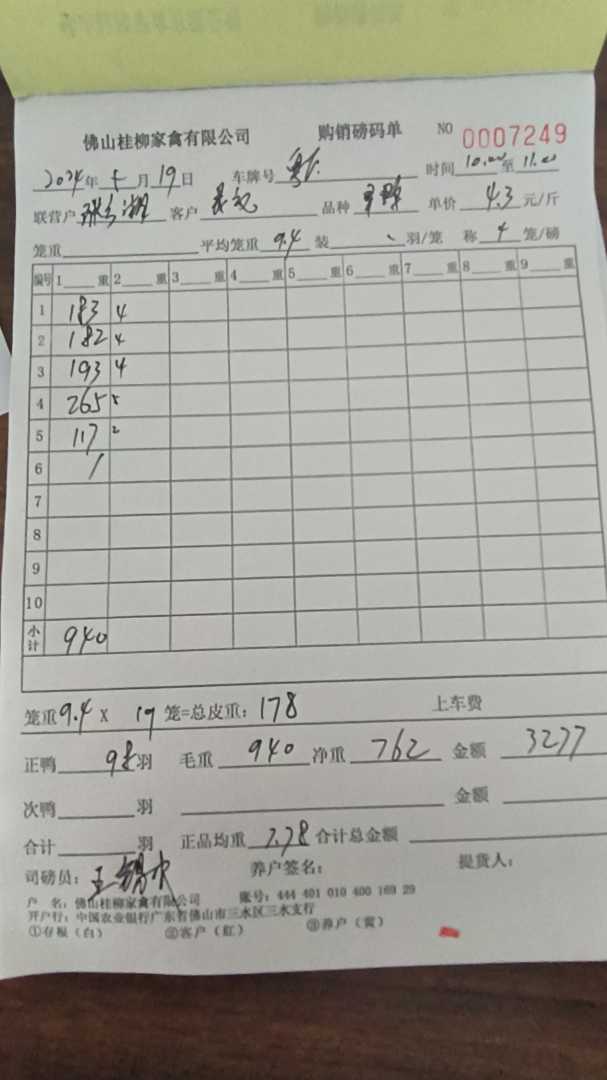 佛山桂柳家禽有限公司 购销磅码单 NO 0007249
2024年 5月19日 车牌号 时间 10.00至11.00
联营户 客户 品种 单价 4.3 元/斤
笼重 平均笼重 9.4 装 羽/笼 称 4 笼/磅
编号 1 重 2 重 3 重 4 重 5 重 6 重 7 重 8 重 9 重
1 183 4
2 182 4
3 193 4
4 265 5
5 117 2
6 /
7
8
9
10
小计 940
笼重9.4 X 19 笼=总皮重:178 上车费
正鸭 98 羽 毛重 940 净重 762 金额 3277
次鸭 羽 金额
合计 羽 正品均重 7.78 合计总金额
司磅员: 养户签名: 提货人:
户 名:佛山桂柳家禽有限公司 账号:444 401 010 400 169 29
开户行:中国农业银行广东省佛山市三水区三水支行
①存根(白) ②客户(红) ③养户(黄)